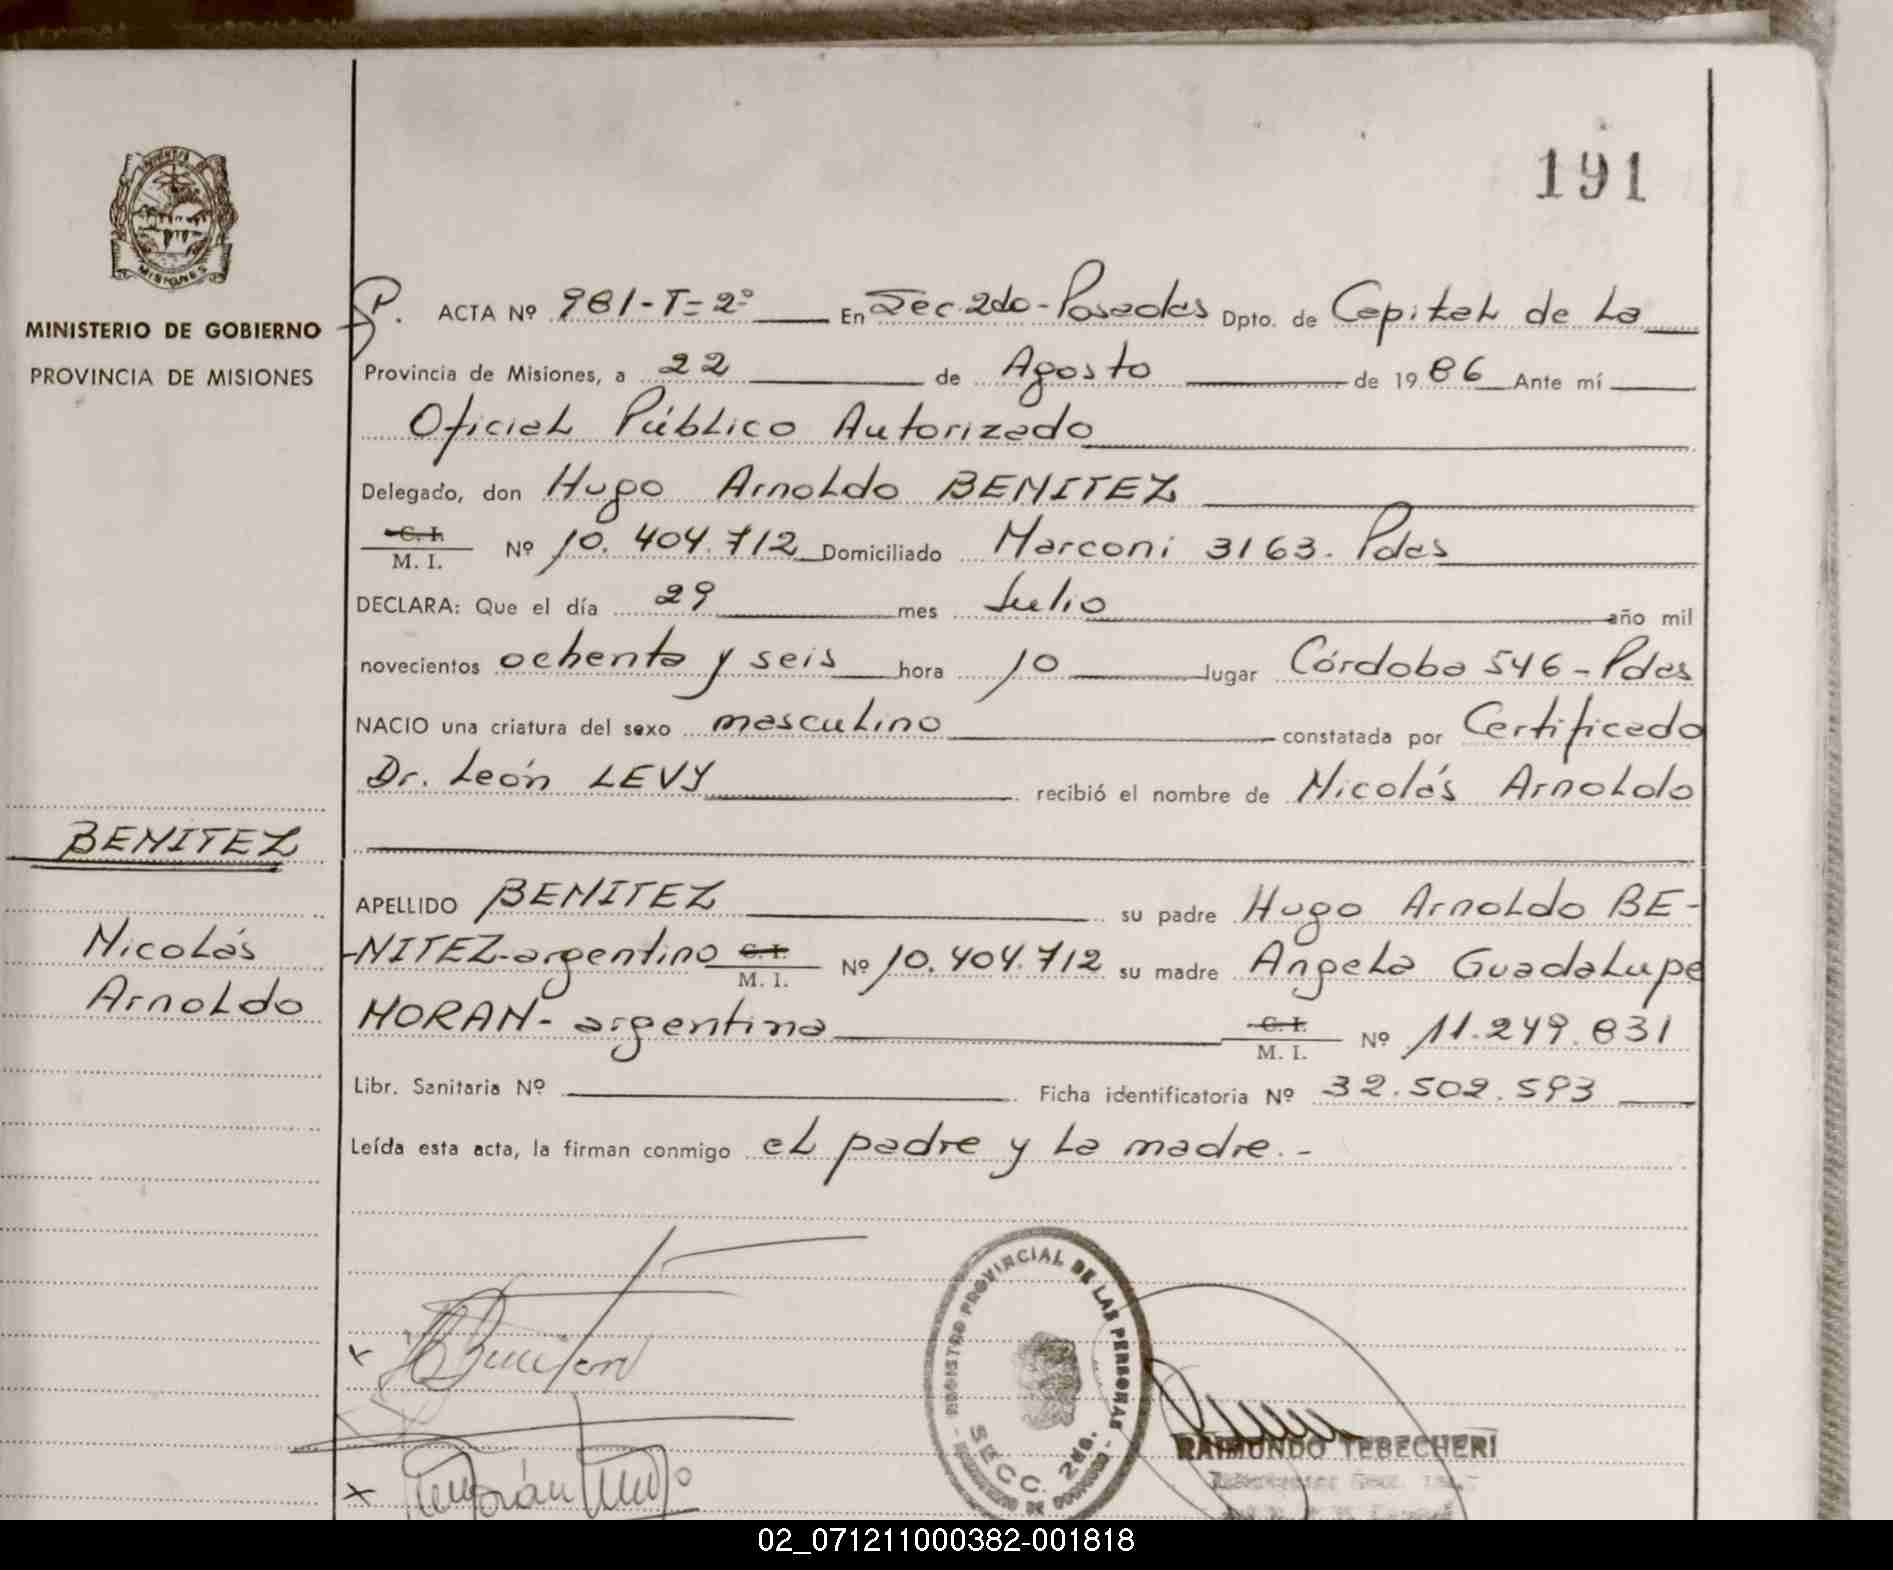 191
MISIONES
MINISTERIO DE GOBIERNO
PROVINCIA DE MISIONES
BENITEZ
Nicolás
Arnoldo
P. ACTA Nº 981-T=2º En Sec. 2do-Posadas Dpto. de Capital de La
Provincia de Misiones, a 22 de Agosto de 1986 Ante mí
Oficial Público Autorizado
Delegado, don Hugo Arnoldo BENITEZ
C. I.
M. I. Nº 10.404.712 Domiciliado Marconi 3163. Pdas
DECLARA: Que el día 29 mes Julio año mil
novecientos ochenta y seis hora 10 lugar Córdoba 546-Pdas
NACIO una criatura del sexo masculino constatada por Certificado
Dr. León LEVY recibió el nombre de Nicolás Arnoldo
APELLIDO BENITEZ su padre Hugo Arnoldo BE-
-NITEZ-argentino C. I. M. I. Nº 10.404.712 su madre Angela Guadalupe
MORAN-argentina C. I. M. I. Nº 11.249.831
Libr. Sanitaria Nº Ficha identificatoria Nº 32.502.593
Leída esta acta, la firman conmigo el padre y la madre.-
REGISTRO PROVINCIAL DE LAS PERSONAS
SECC. 2da.
RAIMUNDO TEBECHERI
02_071211000382-001818